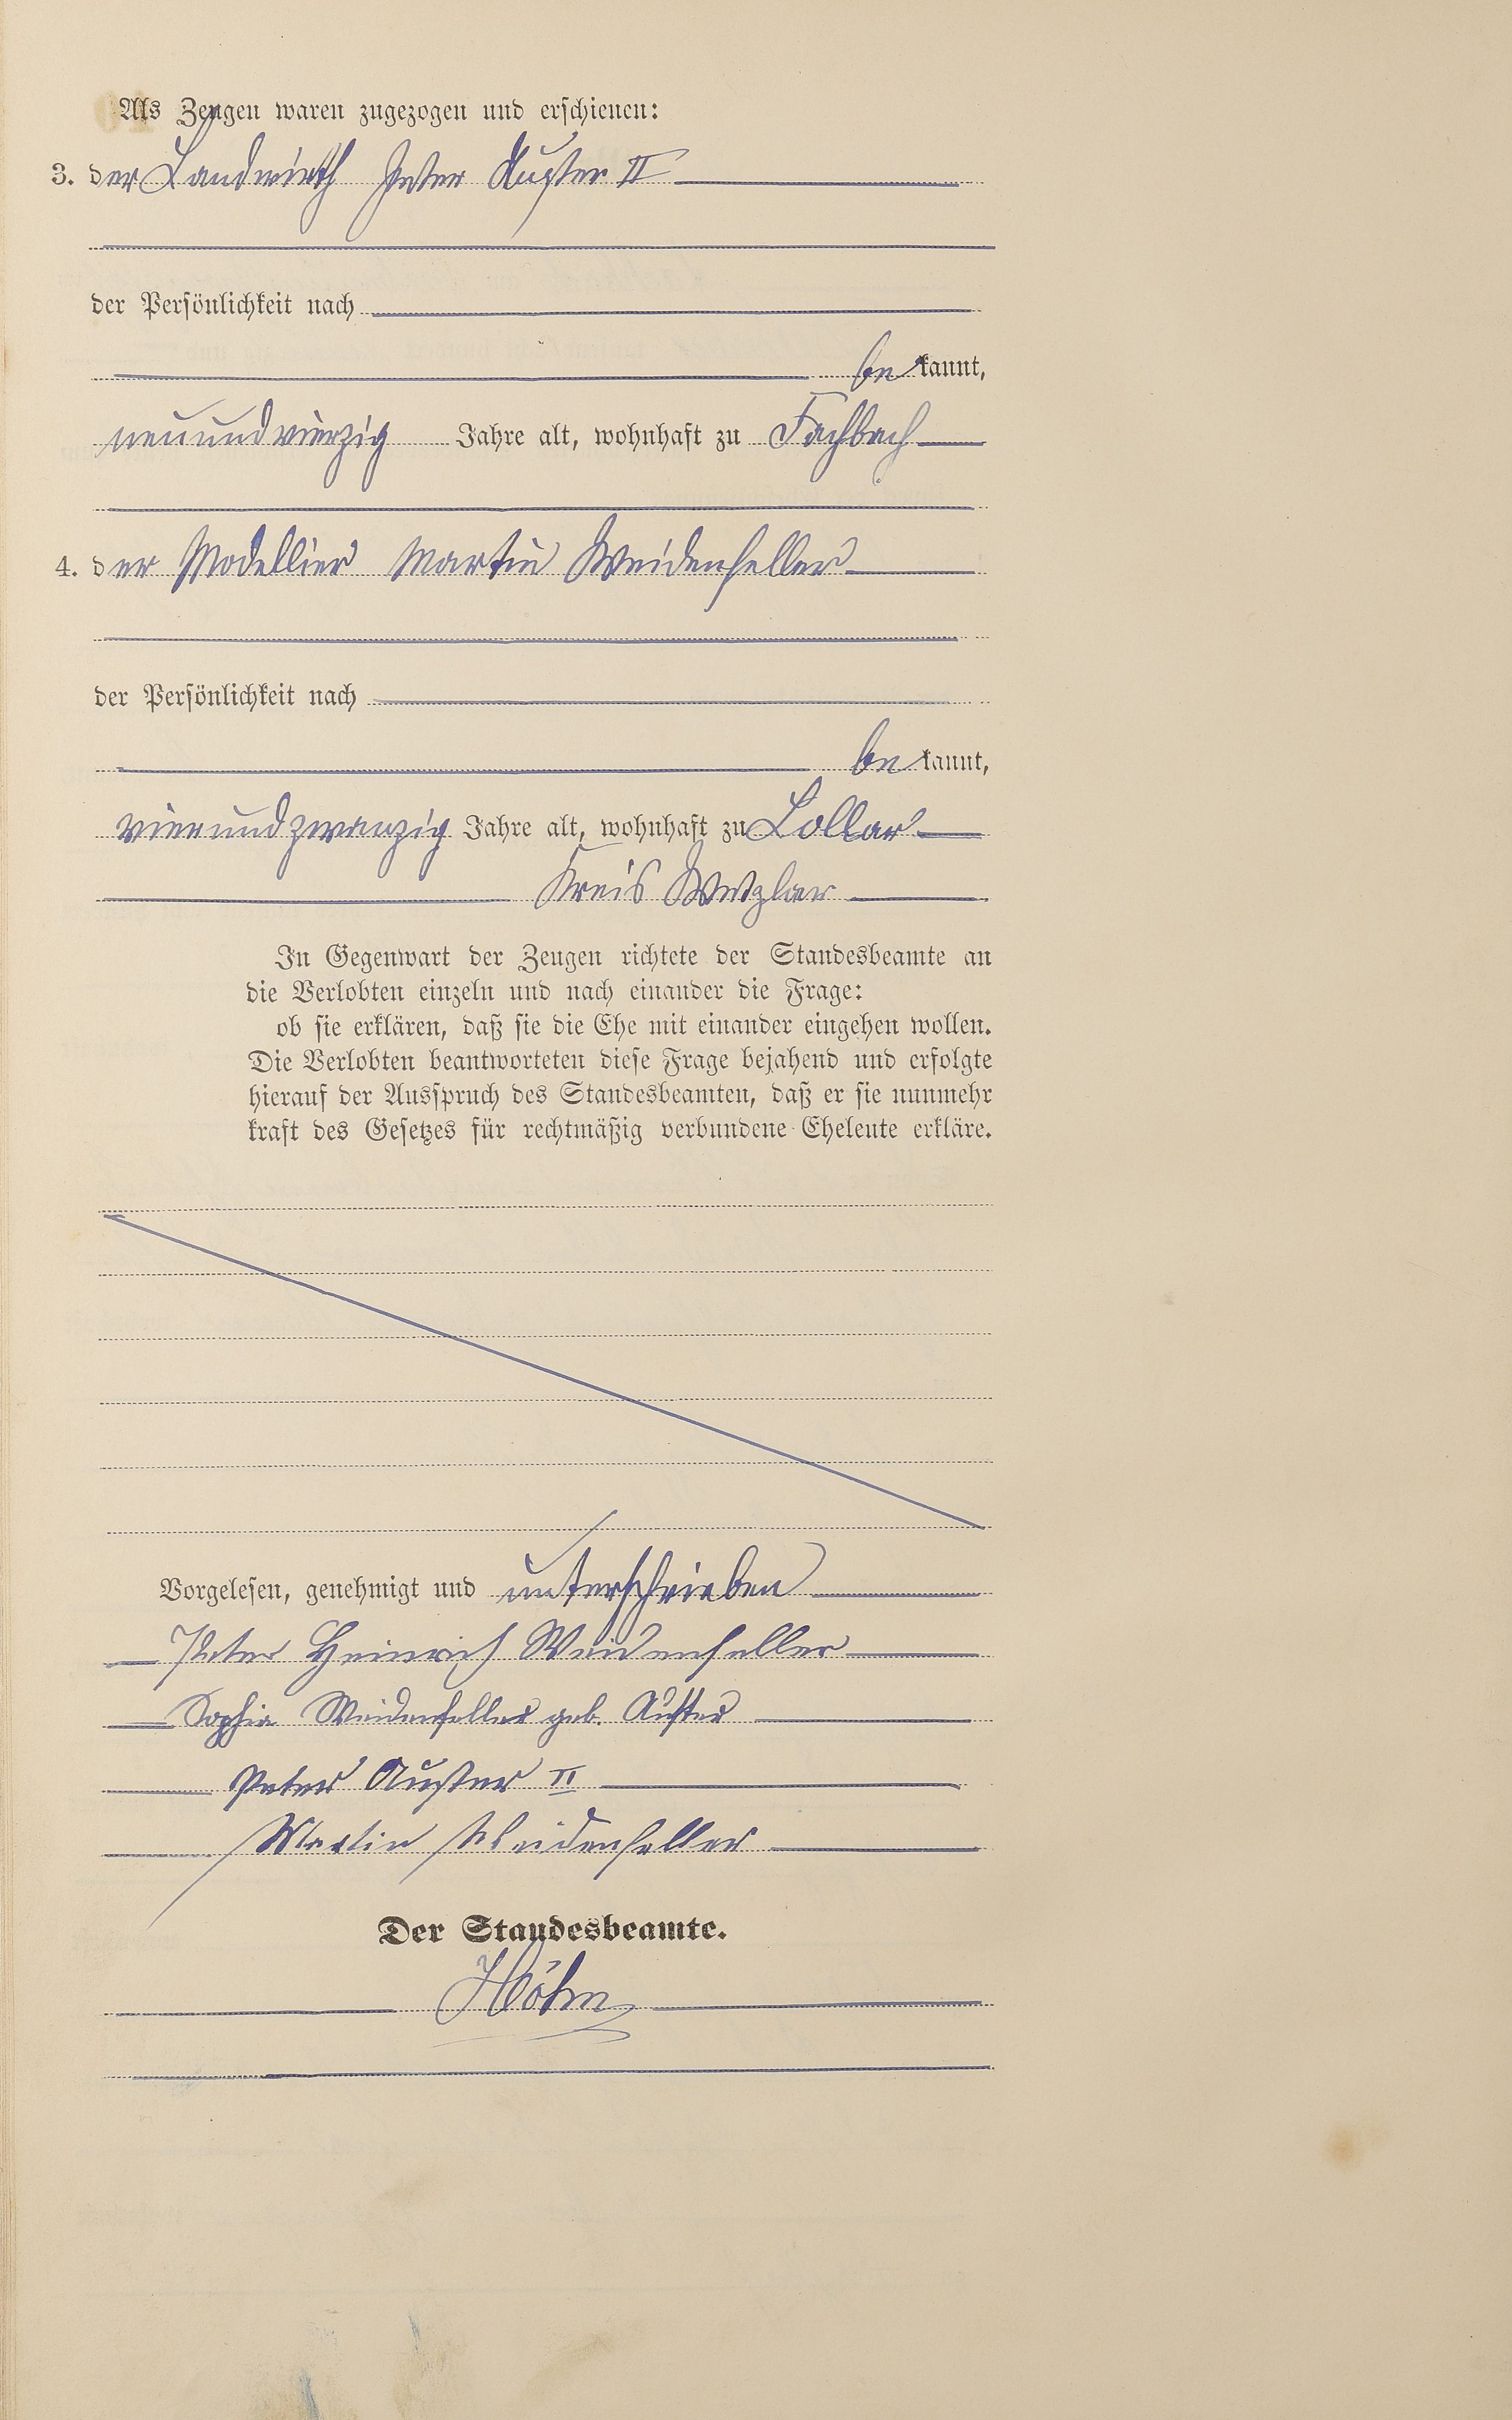 Als Zeugen waren zugezogen und erschienen:
3. der Landwirth Peter Auster II
der Persönlichkeit nach
be kannt,
neunundvierzig Jahre alt, wohnhaft zu Fachbach
4. der Modellier Martin Weidenfeller
der Persönlichkeit nach
be kannt,
vierundzwanzig Jahre alt, wohnhaft zu Lollar
Kreis Wetzlar
In Gegenwart der Zeugen richtete der Standesbeamte an
die Verlobten einzeln und nach einander die Frage:
ob sie erklären, daß sie die Ehe mit einander eingehen wollen.
Die Verlobten beantworteten diese Frage bejahend und erfolgte
hierauf der Ausspruch des Standesbeamten, daß er sie nunmehr
kraft des Gesetzes für rechtmäßig verbundene Eheleute erkläre.
Vorgelesen, genehmigt und unterschrieben
Peter Heinrich Weidenfeller
Sophia Weidenfeller geb. Auster
Peter Auster II
Martin Weidenfeller
Der Standesbeamte.